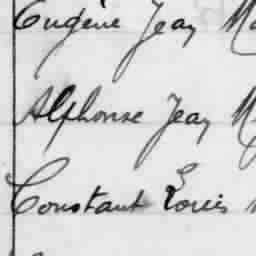 Eugène Jean
Alphonse Jean
Constant Louis